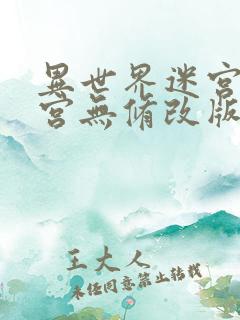 異世界迷宮
宮無修改版
王大人
未经同意禁止转载